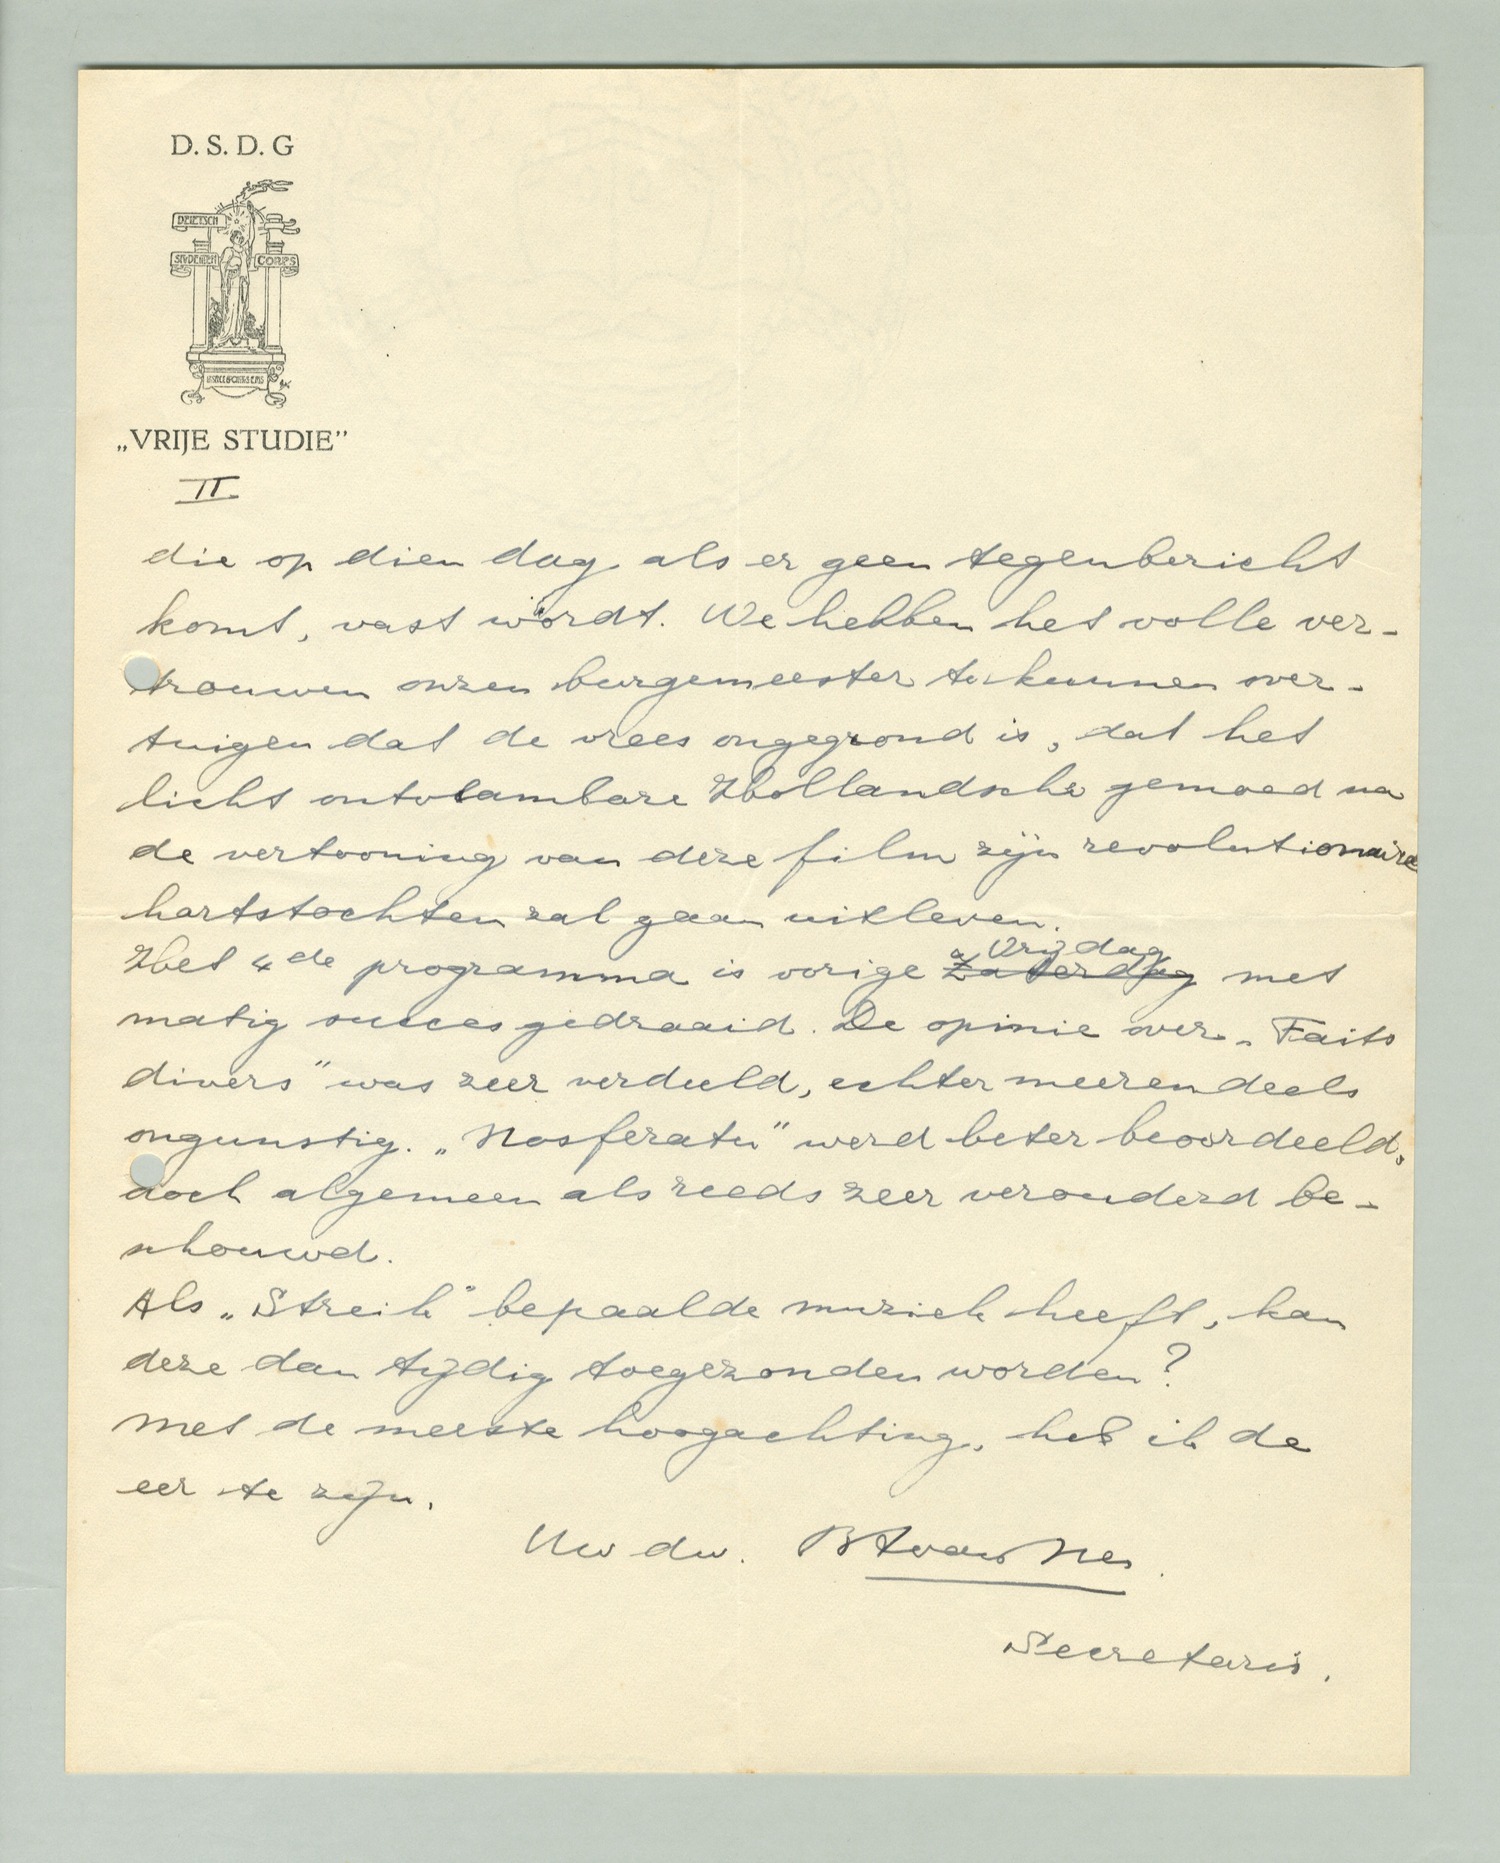 D. S. D. G
DELFTSCH
STUDENTEN CORPS
„VRIJE STUDIE”
II
die op dien dag als er geen tegenbericht
komt, vast wordt. We hebben het volle ver-
trouwen onzen burgemeester te kunnen over-
tuigen dat de vrees ongegrond is, dat het
licht ontvlambare Hollandsche gemoed na
de vertooning van deze film zijn revolutionaire
hartstochten zal gaan uitleven.
Vrijdag
Het 4de programma is vorige Zaterdag met
matig succes gedraaid. De opinie over „Faits
divers” was zeer verdeeld, echter meerendeels
ongunstig. „Nosferatu” werd beter beoordeeld,
doch algemeen als reeds zeer verouderd be-
schouwd.
Als „Streik” bepaalde muziek heeft, kan
deze dan tijdig toegezonden worden?
Met de meeste hoogachting, heb ik de
eer te zijn,
Uw dw. van Nes.
Secretaris.